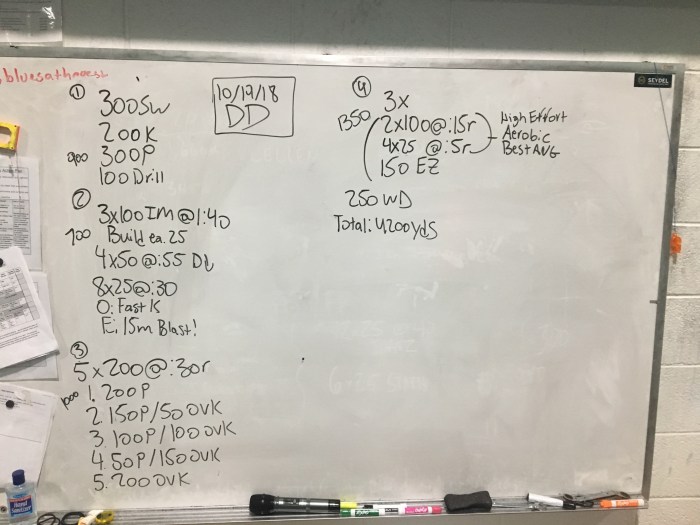 bluesathmoesb
10/19/18
DD
①
300SW
200K
900 300P
100 Drill
②
3x100 IM @ 1:40
700 Build ea. 25
4x50 @ :55 DL
8x25 @ :30
O: Fast K
E: 15m Blast!
③
5 x 200 @ :30r
1000 1. 200P
2. 150P/50 OVK
3. 100P/100 OVK
4. 50P/150 OVK
5. 200 OVK
④
3x
1350 2x100 @ :15r
4x25 @ :5r
150 EZ
High Effort
Aerobic
Best AVG
250 WD
Total: 4200yds
SEYDEL
Hand
Sanitizer